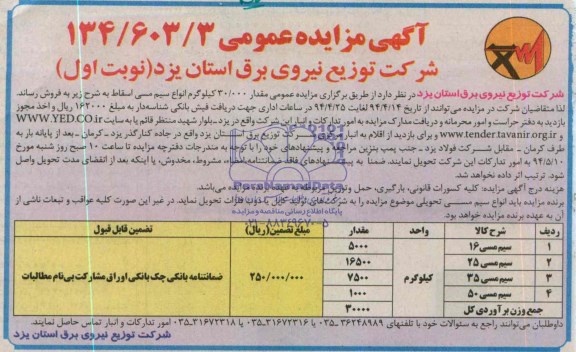 آگهی مزایده عمومی ۱۳۴/۶۰۳/۳
شرکت توزیع نیروی برق استان یزد(نوبت اول)
شرکت توزیع نیروی برق استان یزد در نظر دارد از طریق برگزاری مزایده عمومی مقدار ۳۰/۰۰۰ کیلوگرم انواع سیم مسی اسقاط به شرح زیر به فروش رساند.
لذا متقاضیان شرکت در مزایده می‌توانند از تاریخ ۹۴/۴/۱۴ لغایت ۹۴/۴/۲۵ در ساعات اداری جهت دریافت فیش بانکی شناسه‌دار به مبلغ ۱۶۲۰۰۰ ریال و اخذ مجوز
بازدید به دفتر حراست و امور محرمانه و دریافت مدارک مزایده به امور تدارکات و انبار این شرکت واقع در یزد-بلوار شهید منتظر قائم یا به سایت WWW.YED.CO.ir
و www.tender.tavanir.org.ir و برای بازدید از اقلام به انبار شرکت توزیع برق استان یزد واقع در جاده کنارگذر یزد ـ کرمان ـ بعد از پایانه بار به
طرف کرمان - مقابل شرکت فولاد یزد ـ جنب پمپ بنزین مراجعه و پیشنهادهای خود را با توجه به مندرجات دفترچه مزایده تا ساعت ۱۰ صبح روز شنبه مورخ
۹۴/۵/۱۰ به امور تدارکات این شرکت تحویل نمایند. ضمنا به پیشنهادهای فاقد ضمانتنامه، امضاء، مشروط، مخدوش، یا اینکه بعد از انقضای مدت تحویل واصل
شود. ترتیب اثر داده نخواهد شد.
هزینه درج آگهی مزایده: کلیه کسورات قانونی، بارگیری، حمل و توزین مربوطه به عهده برنده مزایده می‌باشد.
برنده مزایده باید انواع سیم مسی تحویلی موضوع مزایده را به شرکت‌های تولید کابل یا ذوب فلزات تحویل نماید. در غیر این صورت کلیه عواقب و تبعات ناشی از
آن به عهده برنده مزایده خواهد بود.
ParsNamadData
پایگاه اطلاع رسانی مناقصه و مزایده
۰۲۱-۸۸۳۴۹۶۷۰-۵
ردیف شرح کالا واحد مقدار مبلغ تضمین(ریال) تضمین قابل قبول
۱ سیم مسی ۱۶ کیلوگرم ۵۰۰۰ ۲۵۰/۰۰۰/۰۰۰ ضمانتنامه بانکی چک بانکی اوراق مشارکت بی‌نام مطالبات
۲ سیم مسی ۲۵ ۱۶۵۰۰
۳ سیم مسی ۳۵ ۷۵۰۰
۴ سیم مسی ۵۰ ۱۰۰۰
جمع وزن برآوردی کل ۳۰۰۰۰
داوطلبان می‌توانند راجع به سئوالات خود با تلفنهای ۳۶۲۴۸۹۸۹-۰۳۵ یا ۳۱۶۷۲۳۱۶-۰۳۵ یا ۳۱۶۷۲۳۱۸-۰۳۵ امور تدارکات و انبار تماس حاصل نمایند.
شرکت توزیع نیروی برق استان یزد